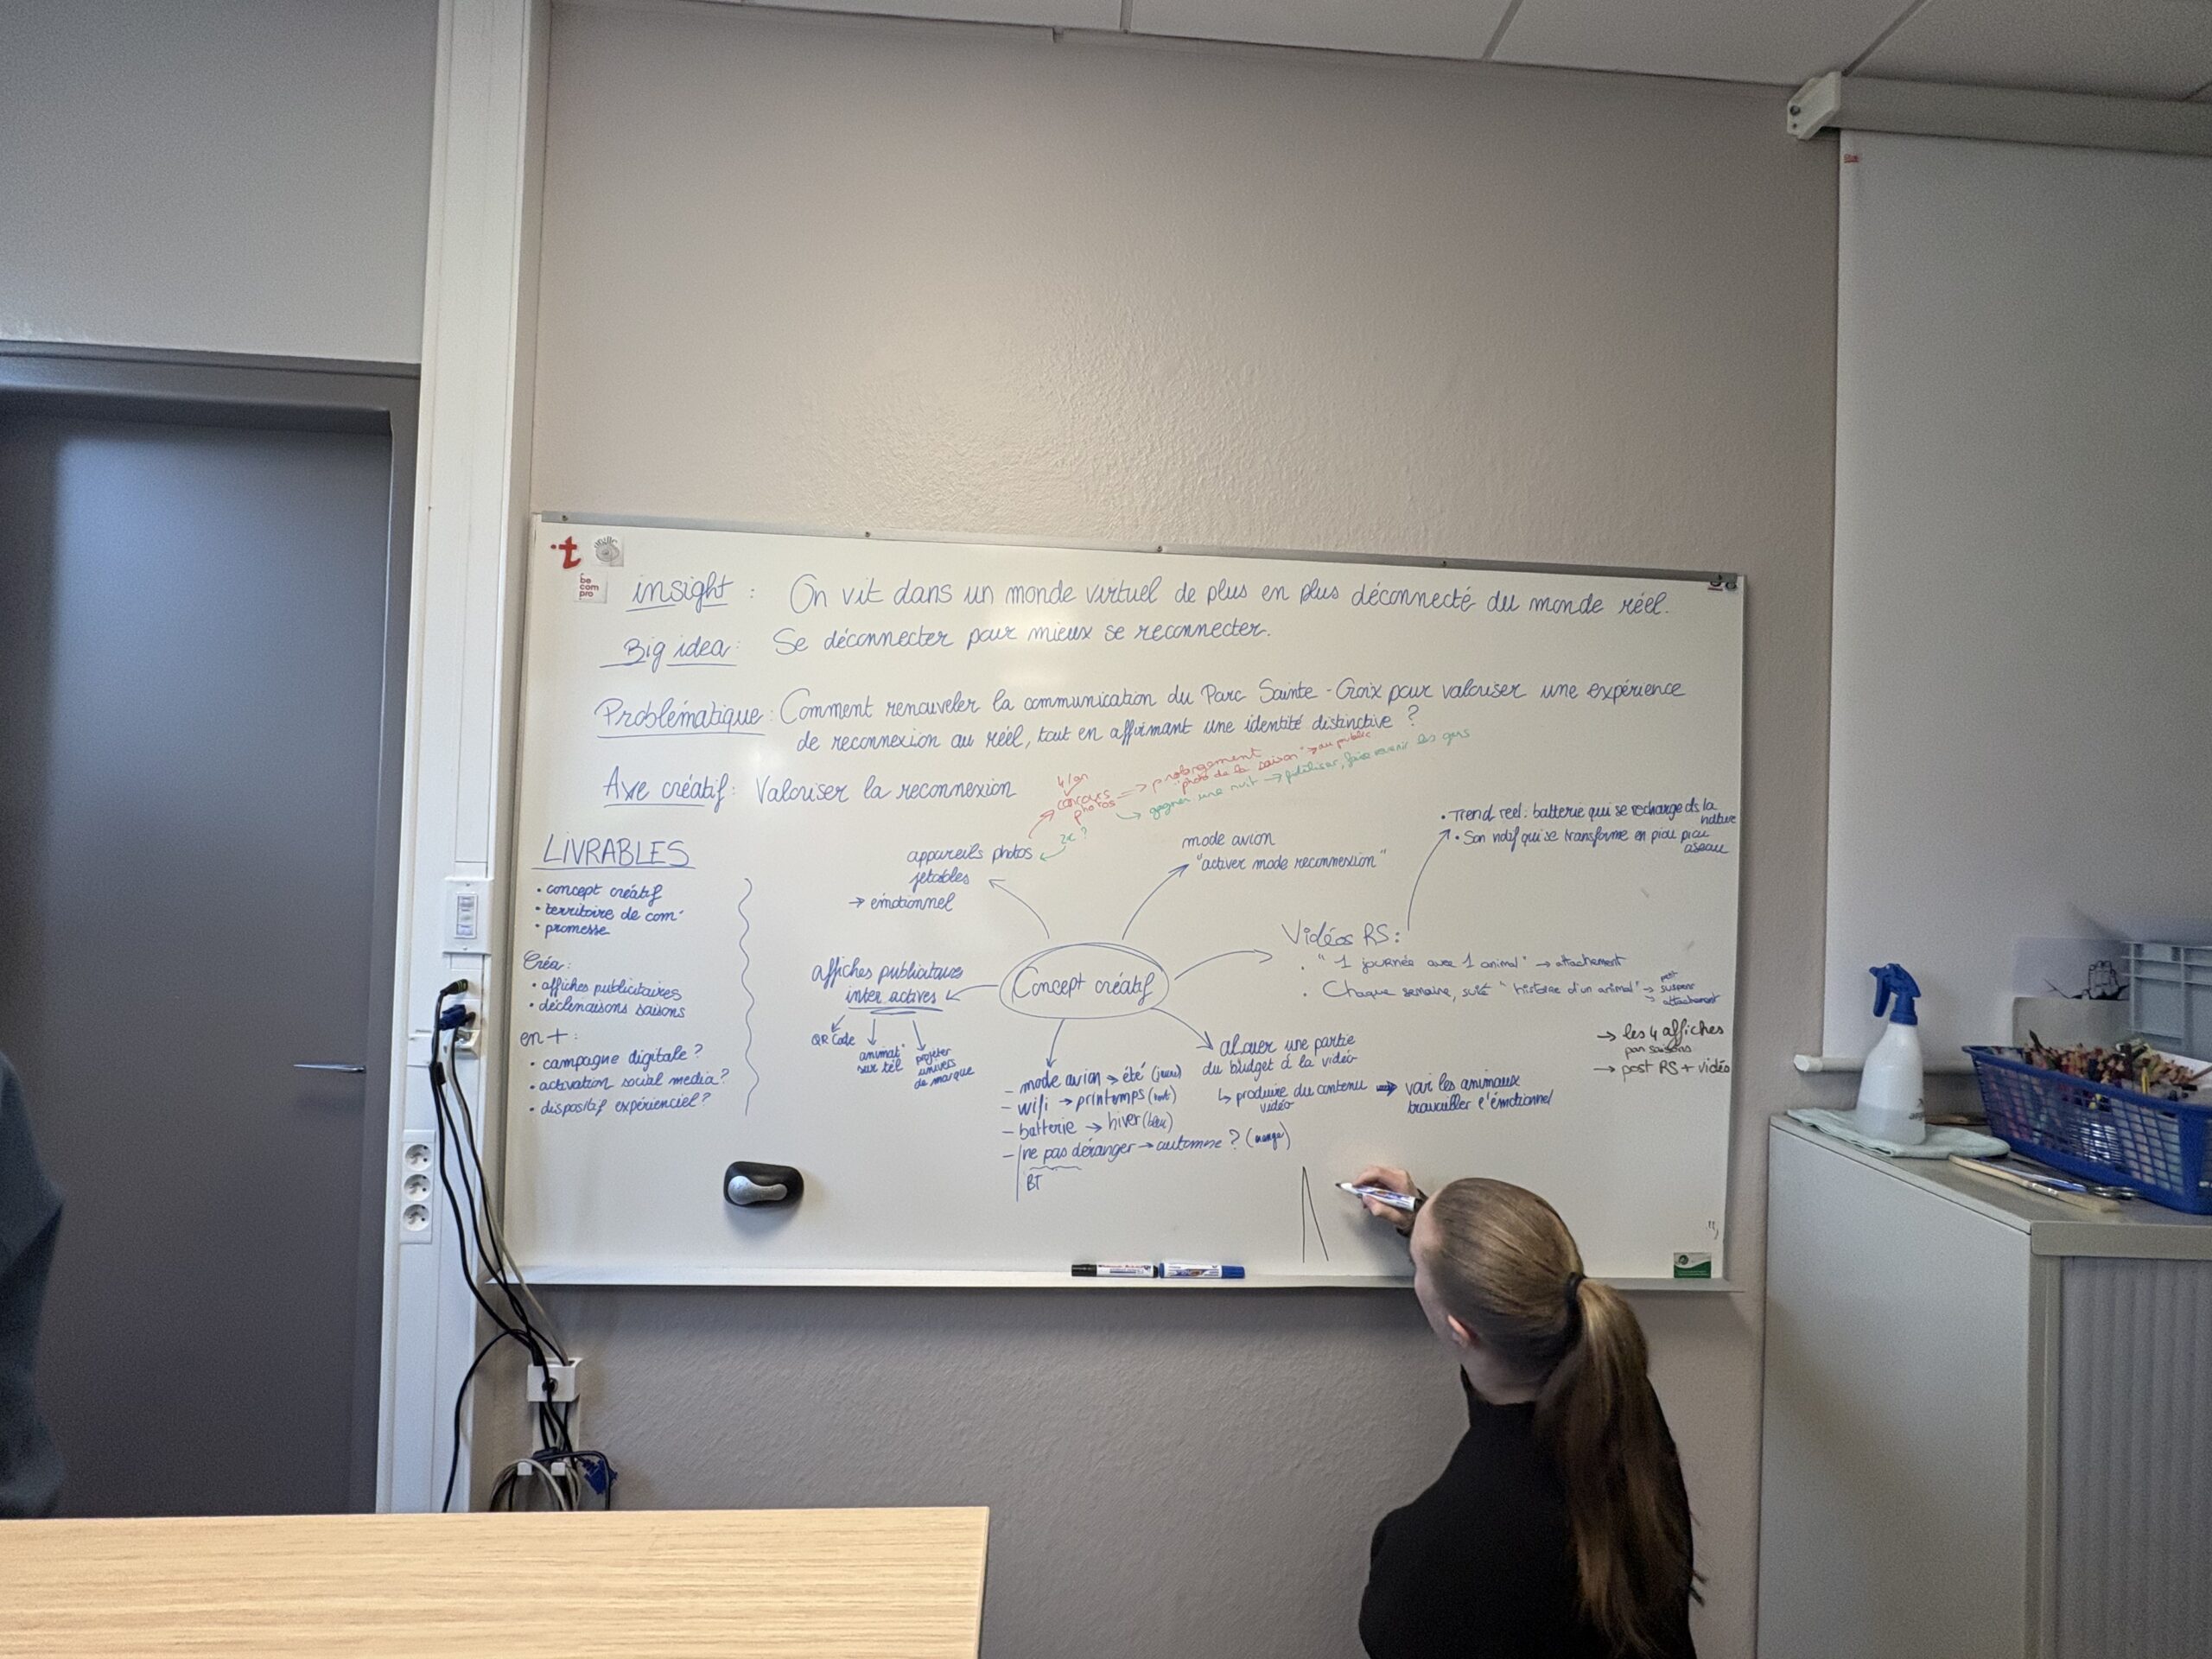 be
com
pro
insight : On vit dans un monde virtuel de plus en plus déconnecté du monde réel.
Big idea : Se déconnecter pour mieux se reconnecter.
Problématique : Comment renouveler la communication du Parc Sainte-Croix pour valoriser une expérience
de reconnexion au réel, tout en affirmant une identité distinctive ?
Axe créatif : Valoriser la reconnexion
4/an
concours
photos
=> prolongement
"photo de la saison" → au public
→ gagner une nuit → fidéliser, faire revenir les gens
2€ ?
appareils photos
jetables
→ émotionnel
mode avion
"activer mode reconnexion"
• Trend reel : batterie qui se recharge ds la
nature
• Son notif qui se transforme en piou piou
oiseau
LIVRABLES
• concept créatif
• territoire de com°
• promesse
Créa :
• affiches publicitaires
• déclinaisons saisons
en + :
• campagne digitale ?
• activation social media ?
• dispositif expérienciel ?
affiches publicitaires
inter actives
QR Code
animat°
sur tél
projeter
univers
de marque
Concept créatif
Vidéos RS :
• "1 journée avec 1 animal" → attachement
• Chaque semaine, suite "histoire d'un animal"
→ suspens
→ attachement
→ les 4 affiches
par saisons
→ post RS + vidéo
allouer une partie
du budget à la vidéo
↳ produire du contenu
vidéo
⇒ voir les animaux
travailler l'émotionnel
– mode avion → été (jaune)
– wifi → printemps (vert)
– batterie → hiver (bleu)
– ne pas déranger → automne ? (orange)
BT